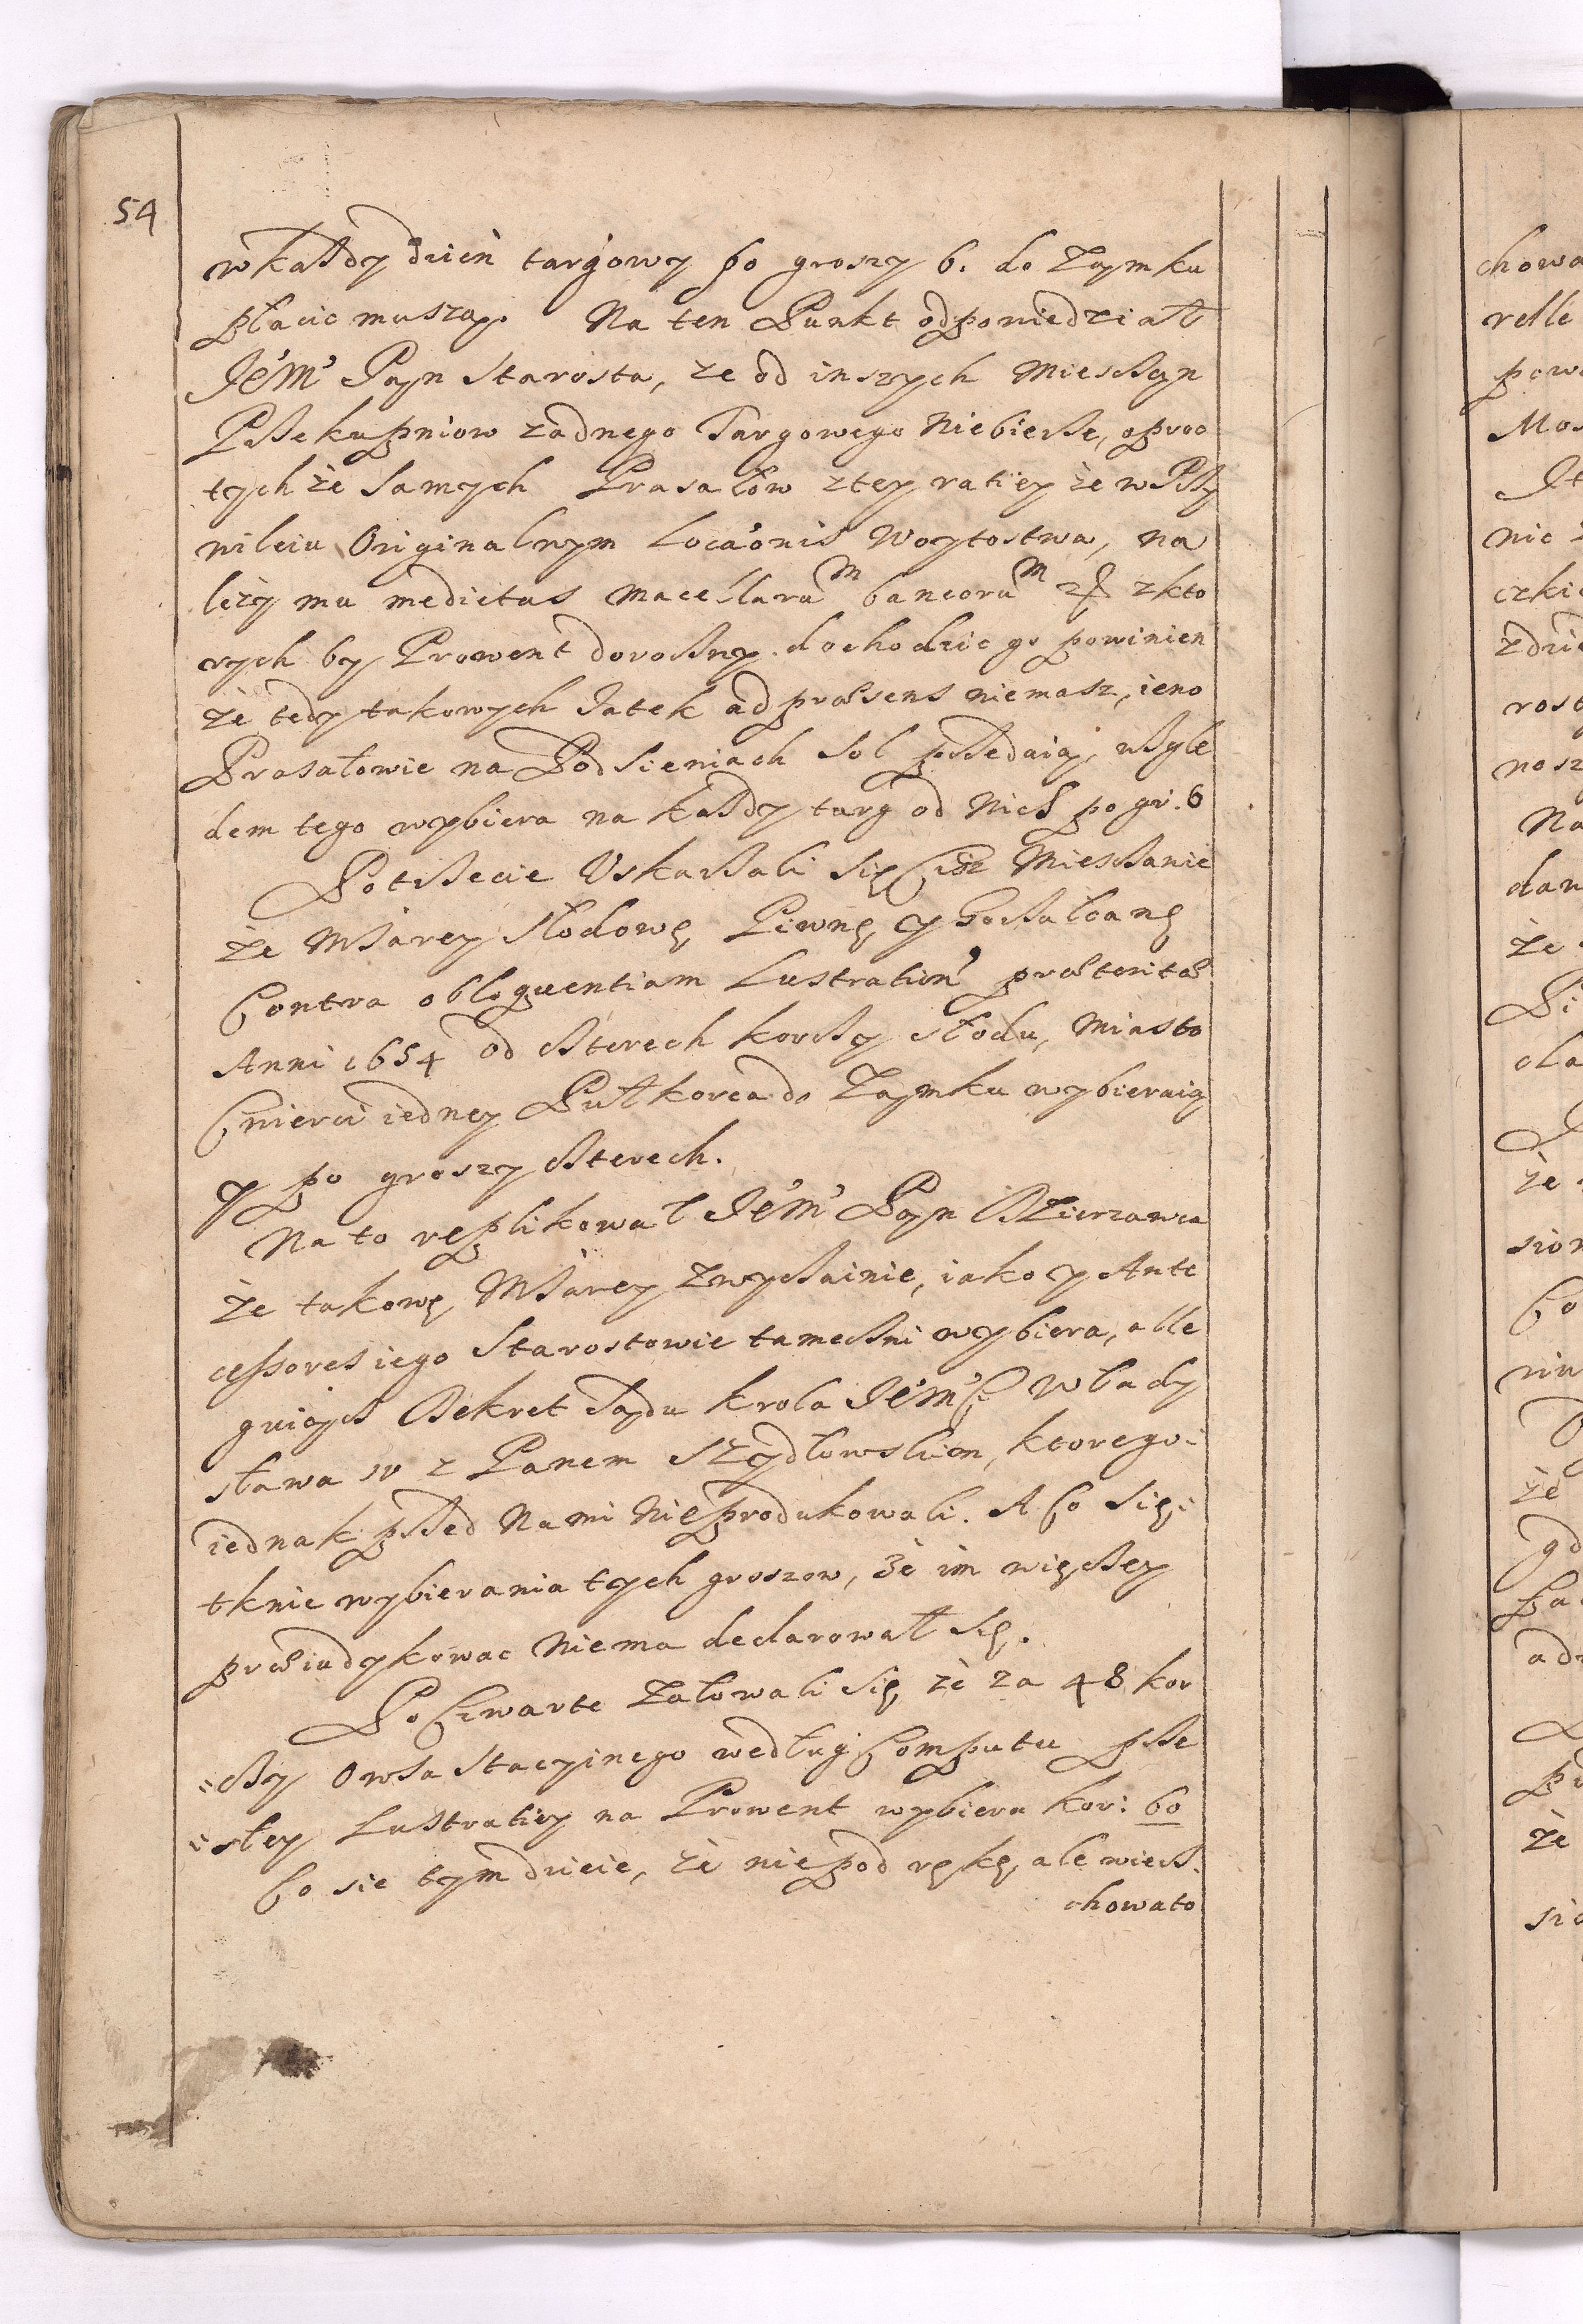 54
w każdy dzień targowy po groszy 6. do Zamku
płacic muszą. Na ten Punkt odpowiedział
JeM Pan Starosta, ze od inszych Mieszczan
Przekupniow zadnego Targowego Niebierze, oproc
tych że samych Prasałow z tey ratiey że w Przy
wileiu Originalnym Loca'onis Woytostwa, na
leży mu medietas macellaru^m bancoru^m z kto
rych by Prowent doroczny dochodzic go powinien
że tedy takowych Jatek ad præsens niemasz, ieno
Prasałowie na Podsieniach Sol przedaią, wzglę
dem tego wybiera na każdy targ od Nich po gr. 6
Potrzecie Uskarżali się Ciż Mieszczanie
że Miarę Słodową, Piwną, y Gorzałczaną
Contra obloquentiam Lustration' præteritæ
Anni 1654 od czterech korcy słodu, miasto
Cwierci iedney Puł korca do Zamku wybieraią
y po groszy czterech.
Na to replikował JeM Pan Dzierzawca
że takową Miarę zwyczainie, iako y Ante
cessores iego Starostowie tameczni wybiera, alle
guiąc Dekret Sądu krola JeMCi Włady
sława IV z Panem Szydłowskim, ktorego
iednak przed Nami Nieprodukowali. A Co się
tknie wybierania tych groszow, że im więcey
præiudykowac Niema declarował się.
Po Czwarte Załowali się że za 48 kor
cy Owsa Stacyinego według Computu prze
szłey Lustratiey na Prowent wybiera kor: 60
Co sie tym dzieie, że nie pod rękę, ale wierz
chowato
chowa
relle
powi
Mos
nic
czki
rost
nosz
Na
dan
że
cla
że
sion
Co
niu
że
gd
że